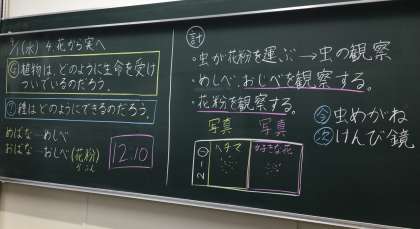 9/1(水) 4.花から実へ
植物は、どのように生命を受け
ついでいるのだろう。
種はどのようにできるのだろう。
めばな…めしべ
おばな…おしべ(花粉)
かふん
12:10
計
・虫が花粉を運ぶ→虫の観察
・めしべ、おしべを観察する。
・花粉を観察する。
写真 写真
ヘチマ 好きな花
2-①
今 虫めがね
次 けんび鏡